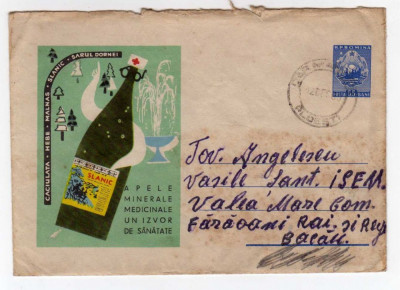 CACIULATA · HEBE · MALNAS · SLANIC · SARUL DORNEI
SLANIC
APELE
MINERALE
MEDICINALE
UN IZVOR
DE SĂNĂTATE
R.P. ROMINA
55 BANI
PLOEȘTI
Tov. Angelescu
Vasile Sant. ISEM.
Valea Mare Com.
Fărăoani Rai. și Reg
Bacău.